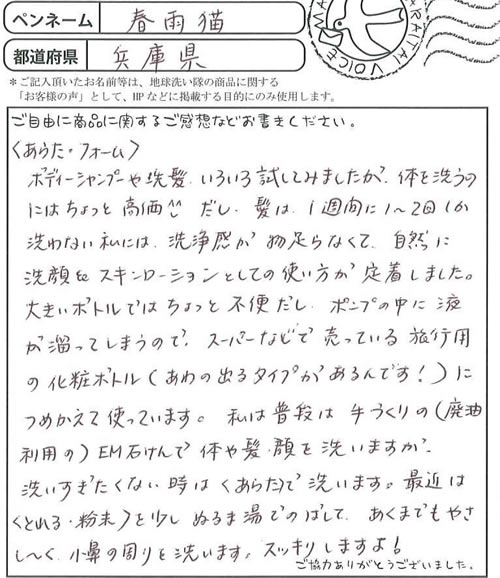 ペンネーム 春雨猫
都道府県 兵庫県
ARAITAI VOICE
*ご記入頂いたお名前等は、地球洗い隊の商品に関する
「お客様の声」として、HPなどに掲載する目的にのみ使用します。
ご自由に商品に関するご感想などお書きください。
〈あらた・フォーム〉
ボディーシャンプーや洗髪、いろいろ試してみましたが、体を洗うの
にはちょっと高価^^ だし、髪は、1週間に1〜2回しか
洗わない私には、洗浄感が物足らなくて、自然に
洗顔&スキンローションとしての使い方が定着しました。
大きいボトルではちょっと不便だし、ポンプの中に液
が溜ってしまうので、スーパーなどで売っている旅行用
の化粧ボトル(あわの出るタイプがあるんです!)に
つめかえて使っています。私は普段は手づくりの(廃油
利用の)EM石けんで体や髪・顔を洗いますが、
洗いすぎたくない時は〈あらた〉で洗います。最近は
〈とれる・粉末〉を少しぬるま湯でのばして、あくまでもやさ
し〜く、小鼻の周りを洗います。スッキリしますよ!
ご協力ありがとうございました。